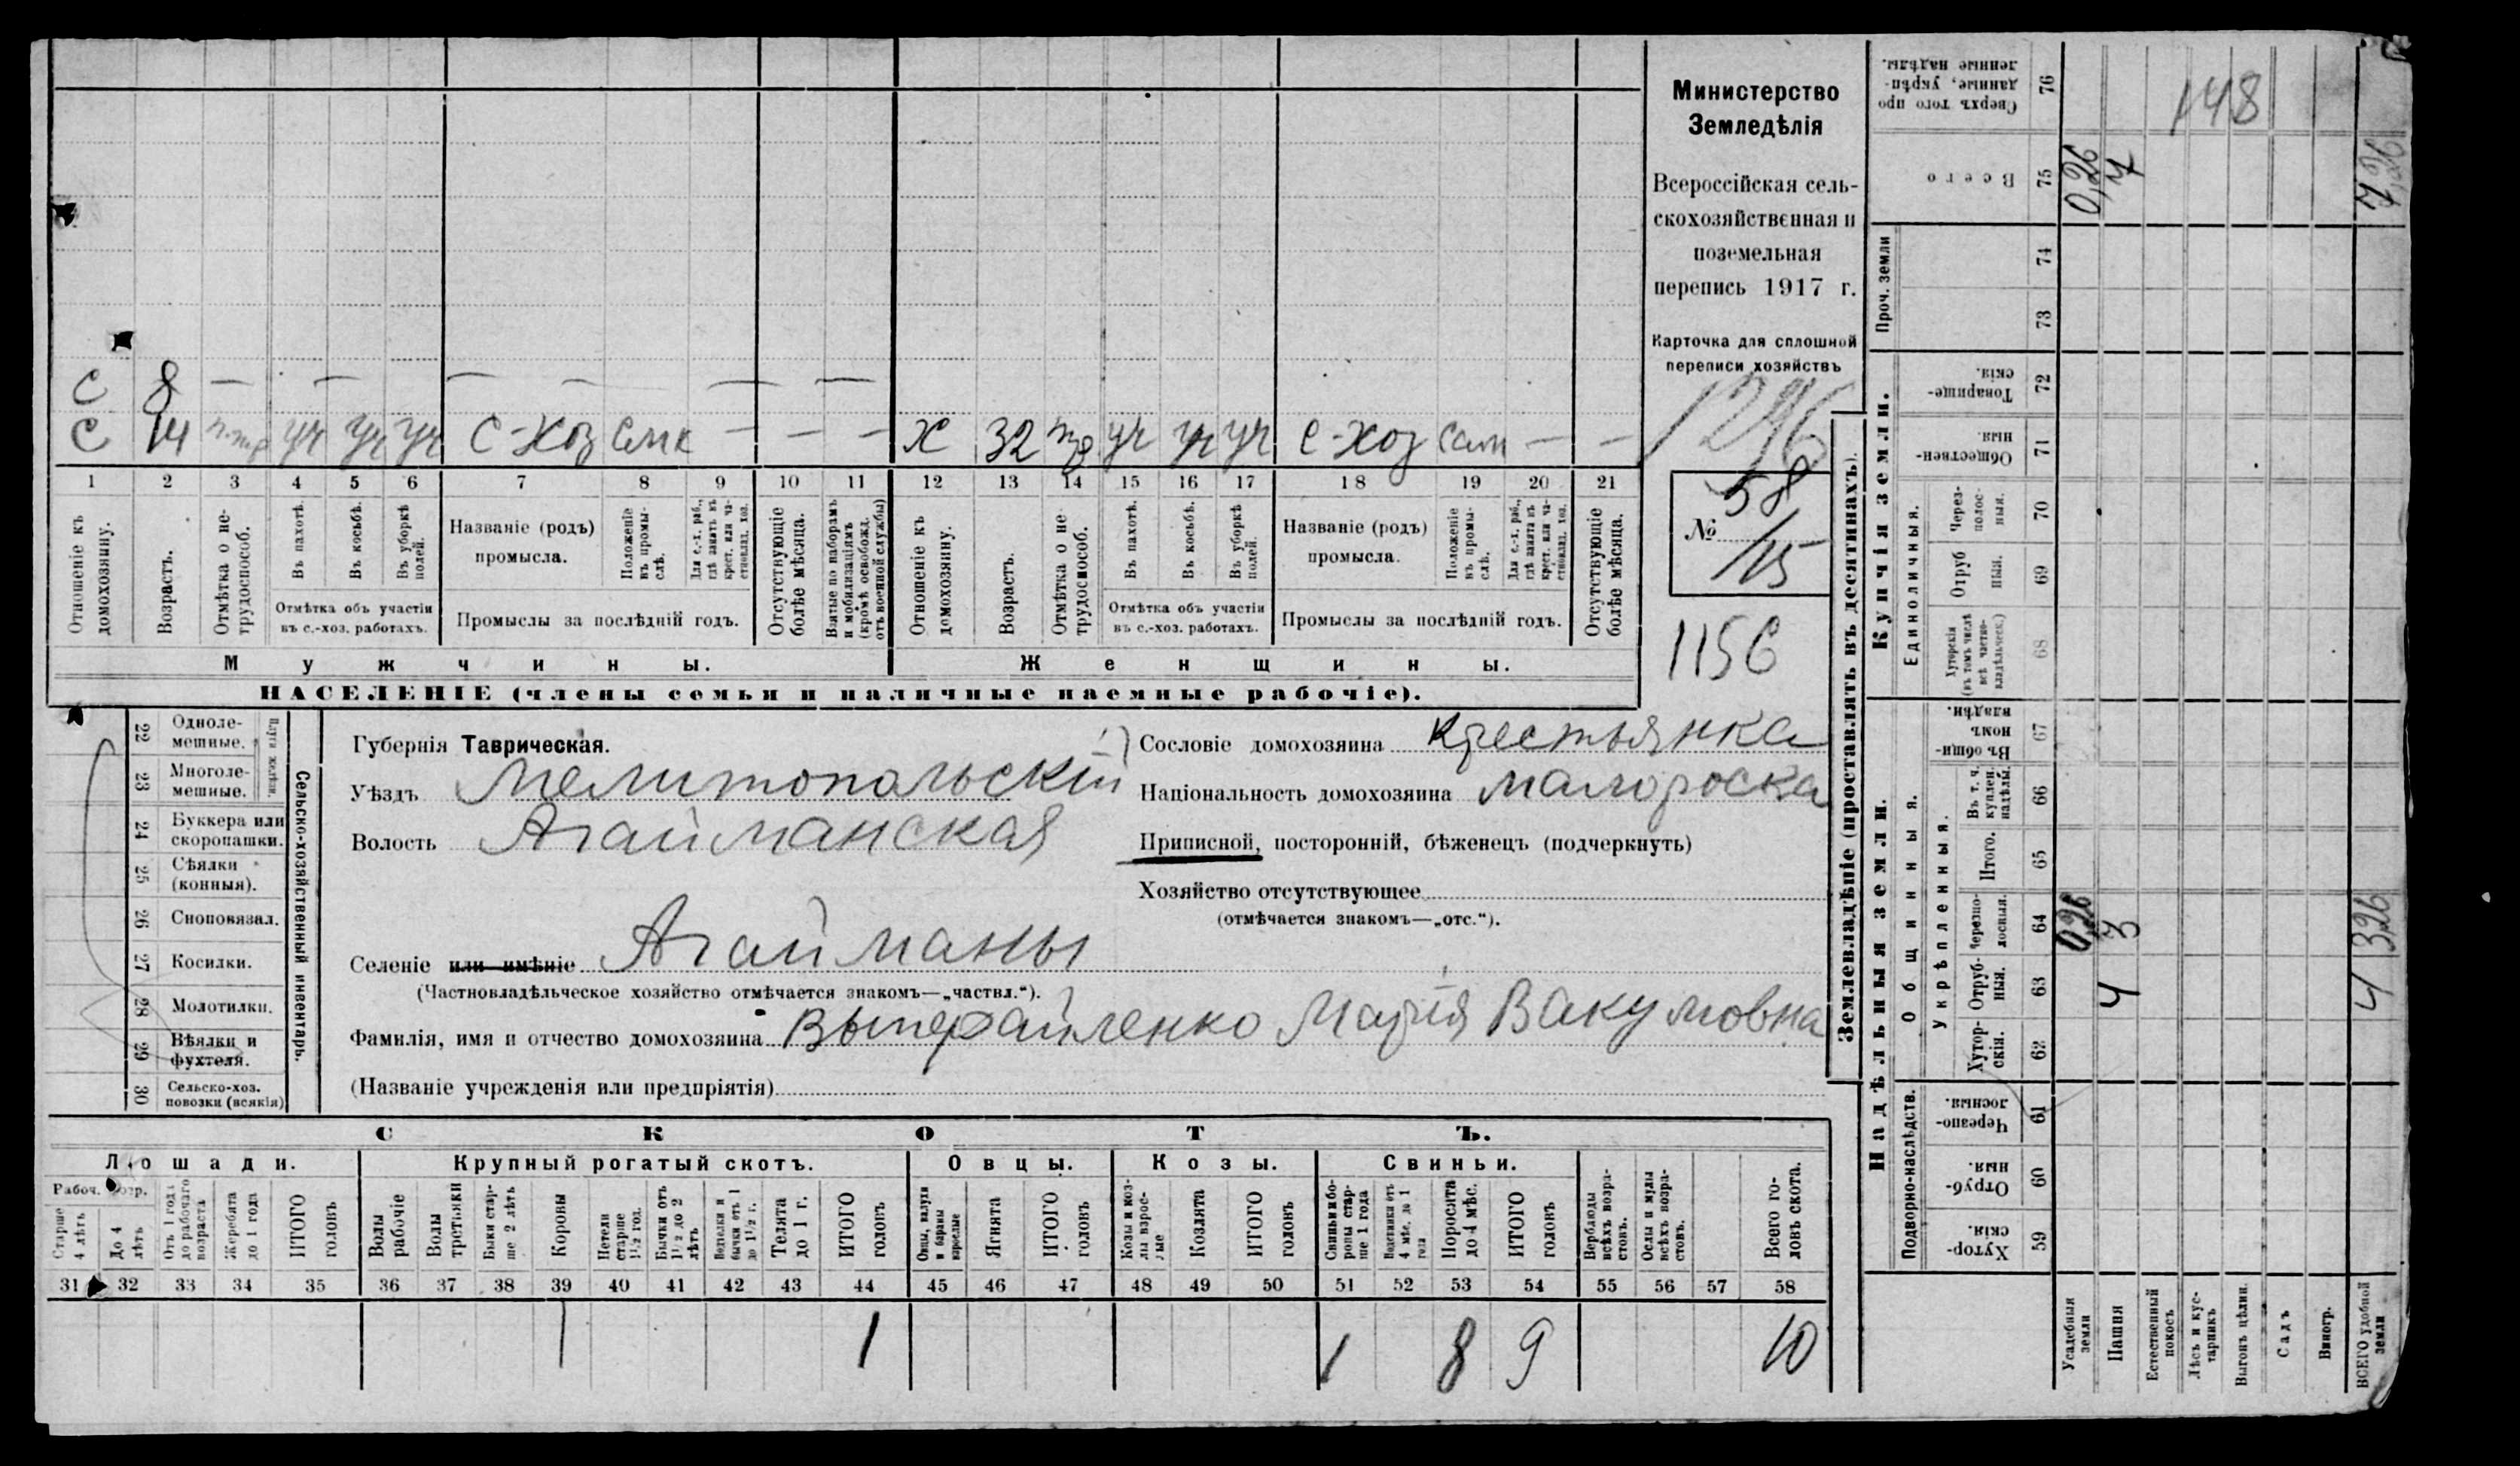 С 8 — — — — — —
С 14 п.тр уч уч уч С-хоз Самк — — — Х 32 тр уч уч уч С-хоз Сам — —
1 2 3 4 5 6 7 8 9 10 11 12 13 14 15 16 17 18 19 20 21
Отношеніе къ домохозяину.
Возрастъ.
Отмѣтка о не-трудоспособ.
Въ пахотѣ.
Въ косьбѣ.
Въ уборкѣ полей.
Отмѣтка объ участіи
въ с.-хоз. работахъ.
Названіе (родъ)
промысла.
Положеніе въ промы-слѣ.
Для с.-х. раб., гдѣ занятъ въ крест. или ча-стновлад. хоз.
Промыслы за послѣдній годъ.
Отсутствующіе болѣе мѣсяца.
Взятые по наборамъ и мобилизаціямъ (кромѣ освобожд. отъ военной службы)
Отношеніе къ домохозяину.
Возрастъ.
Отмѣтка о не трудоспособ.
Въ пахотѣ.
Въ косьбѣ.
Въ уборкѣ полей.
Отмѣтка объ участіи
въ с.-хоз. работахъ.
Названіе (родъ)
промысла.
Положеніе въ промы-слѣ.
Для с.-х. раб., гдѣ занятъ въ крест. или ча-стновлад. хоз.
Промыслы за послѣдній годъ.
Отсутствующіе болѣе мѣсяца.
Мужчины. Женщины.
НАСЕЛЕНІЕ (члены семьи и наличные наемные рабочіе).
Министерство
Земледѣлія
Всероссійская сель-
скохозяйственная и
поземельная
перепись 1917 г.
Карточка для сплошной
переписи хозяйствъ
1296
№ 58
/15
1156
22 Одноле-мешные.
23 Многоле-мешные.
Плуги желѣзн.
24 Буккера или скоропашки.
25 Сѣялки (конныя).
26 Сноповязал.
27 Косилки.
28 Молотилки.
29 Вѣялки и фухтеля.
30 Сельско-хоз. повозки (всякія)
Сельско-хозяйственный инвентарь.
Губернія Таврическая.
Уѣздъ Мелитопольскій
Волость Агайманская
Селеніе или имѣніе Агайманы
(Частновладѣльческое хозяйство отмѣчается знакомъ—„частвл.“).
Сословіе домохозяина крестьянка
Національность домохозяина малороска
Приписной, посторонній, бѣженецъ (подчеркнуть)
Хозяйство отсутствующее
(отмѣчается знакомъ—„отс.“).
Фамилія, имя и отчество домохозяина Выперайленко Марія Вакумовна
(Названіе учрежденія или предпріятія)
СКОТЪ.
Лошади. Крупный рогатый скотъ. Овцы. Козы. Свиньи.
Рабоч. возр.
Старше 4 лѣтъ
До 4 лѣтъ
Отъ 1 года до рабочаго возраста
Жеребята до 1 года
ИТОГО головъ
Волы рабочіе
Волы третьяки
Быки стар-ше 2 лѣтъ
Коровы
Нетели старше 1½ год.
Бычки отъ 1½ до 2 лѣтъ
Водтелки и бычки отъ 1 до 1½ г.
Телята до 1 г.
ИТОГО головъ
Овцы, валухи и бараны взрослые
Ягнята
ИТОГО головъ
Козы и коз-лы взрос-лые
Козлята
ИТОГО головъ
Свиньи и бо-ровы стар-ше 1 года
Подсвинки отъ 4 мѣс. до 1 года
Поросята до 4 мѣс.
ИТОГО головъ
Верблюды всѣхъ возра-стовъ.
Ослы и мулы всѣхъ возра-стовъ.
Всего го-ловъ скота.
31 32 33 34 35 36 37 38 39 40 41 42 43 44 45 46 47 48 49 50 51 52 53 54 55 56 57 58
1 1 1 8 9 10
Землевладѣніе (проставлять въ десятинахъ).
Надѣльныя земли. Купчія земли. Проч. земли
Подворно-наслѣдств. Общинныя. Укрѣпленныя. Единоличныя.
76 Сверхъ того про данные, укрѣп-ленные надѣлы. 148
75 Всего 0,26 7 7,26
74
73
72 Товарище-скія.
71 Обществен-ныя.
70 Через-полос-ныя.
69 Отруб ныя.
68 Хуторскія (въ томъ числѣ всѣ частно-владѣльческ.)
67 Въ общи-номъ владѣн.
66 Въ т. ч. куплен. надѣлы.
65 Итого.
64 Черезпо-лосныя. 0,26 3 3,26
63 Отруб-ныя. 4 4
62 Хутор-скія.
61 Черезпо-лосныя.
60 Отруб-ныя.
59 Хутор-скія.
Усадебныя земли
Пашня
Естественный покосъ
Лѣсъ и кус-тарникъ
Выгонъ цѣлин.
Садъ
Виногр.
ВСЕГО удобной земли